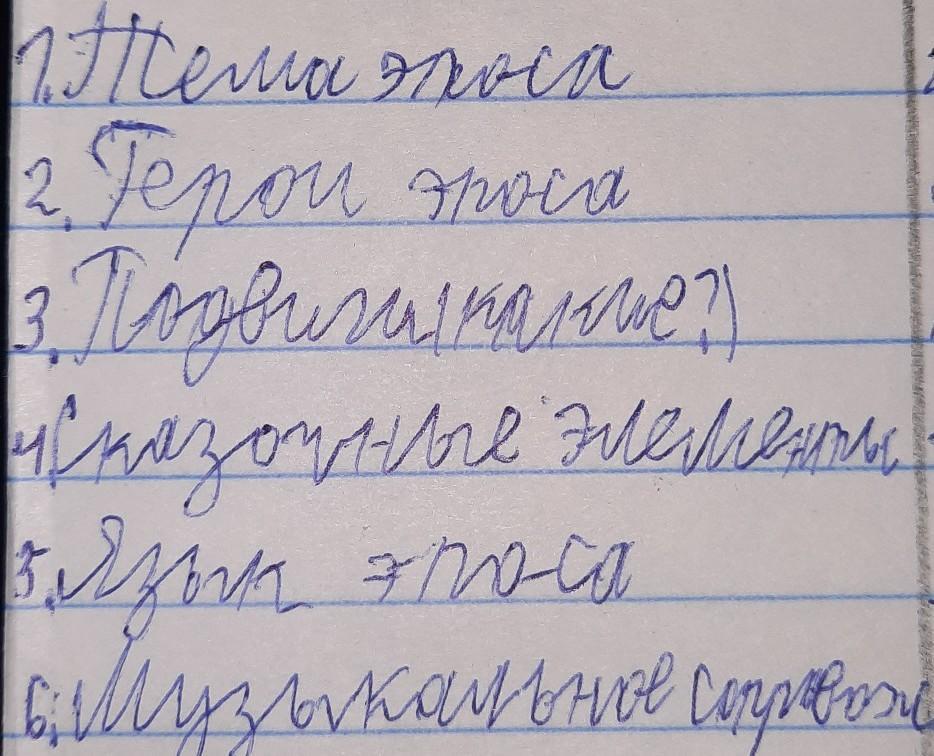 1. Тема эпоса
2. Герои эпоса
3. Подвиги(какие?)
4. Сказочные элементы
5. Язык эпоса
6. Музыкальное сопровож